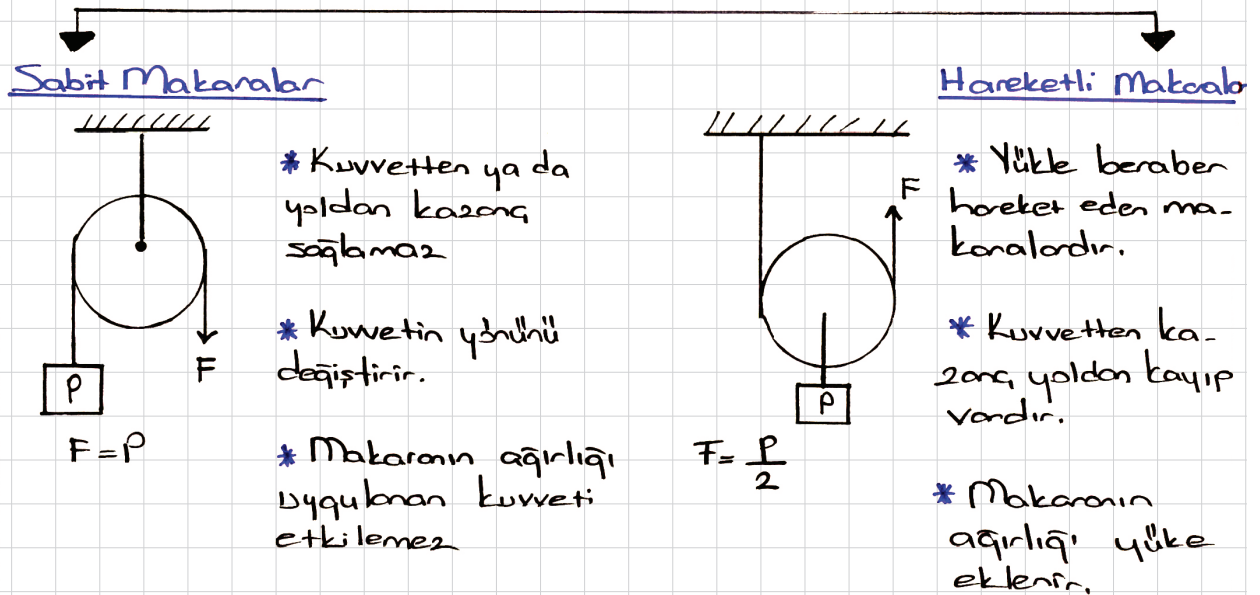 Sabit Makaralar
* Kuvvetten ya da
yoldan kazanç
sağlamaz
* Kuvvetin yönünü
değiştirir.
* Makaranın ağırlığı
uygulanan kuvveti
etkilemez
F
P
F = P
Hareketli Makaralar
* Yükle beraber
hareket eden ma-
karalardır.
* Kuvvetten ka-
zanç yoldan kayıp
vardır.
* Makaranın
ağırlığı yüke
eklenir.
F
P
F = P/2